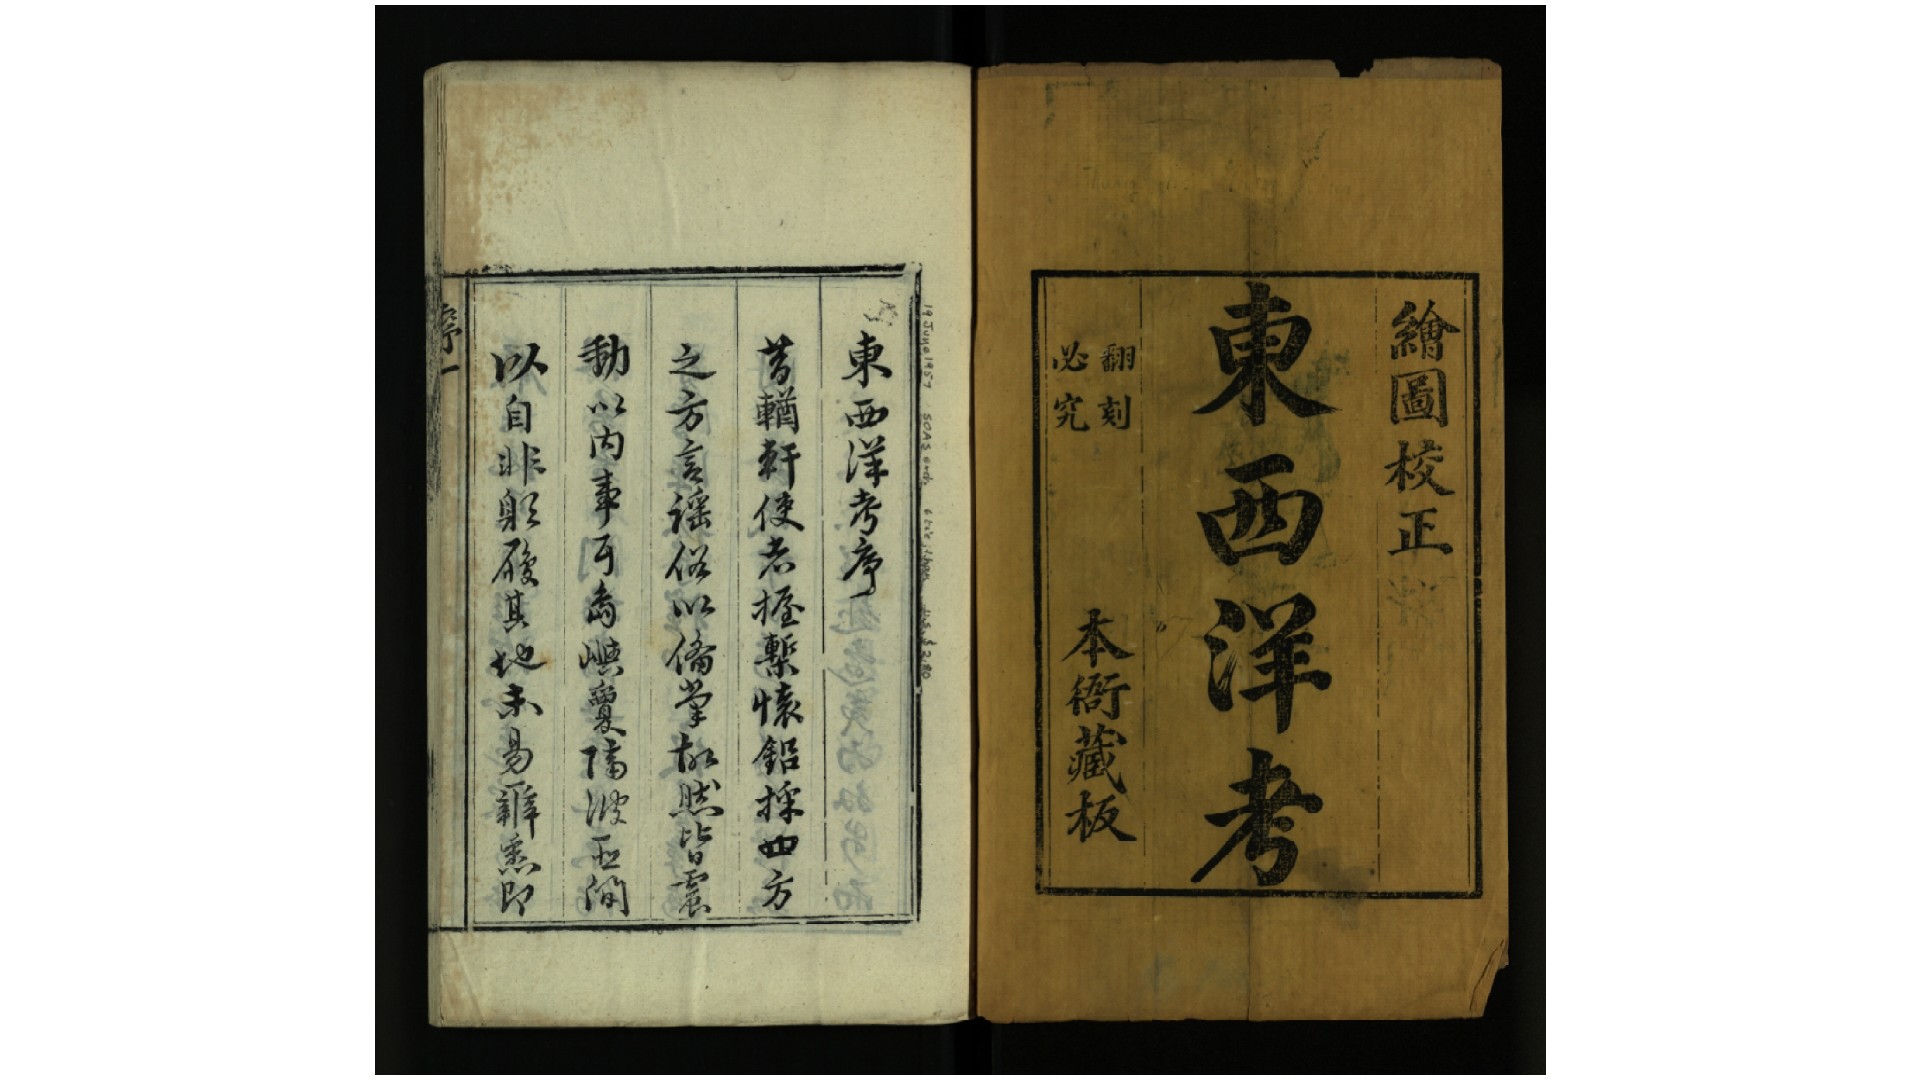 繪圖校正
東西洋考
翻刻
必究
本衙藏板
東西洋考序
昔輶軒使者握槧懷鉛採四方
之方言謡俗以俻掌故然皆震
勳以内事耳
島嶼夐隔波
以自非躬履其地未易雜悉即
序一
19 June 1957 SOAS